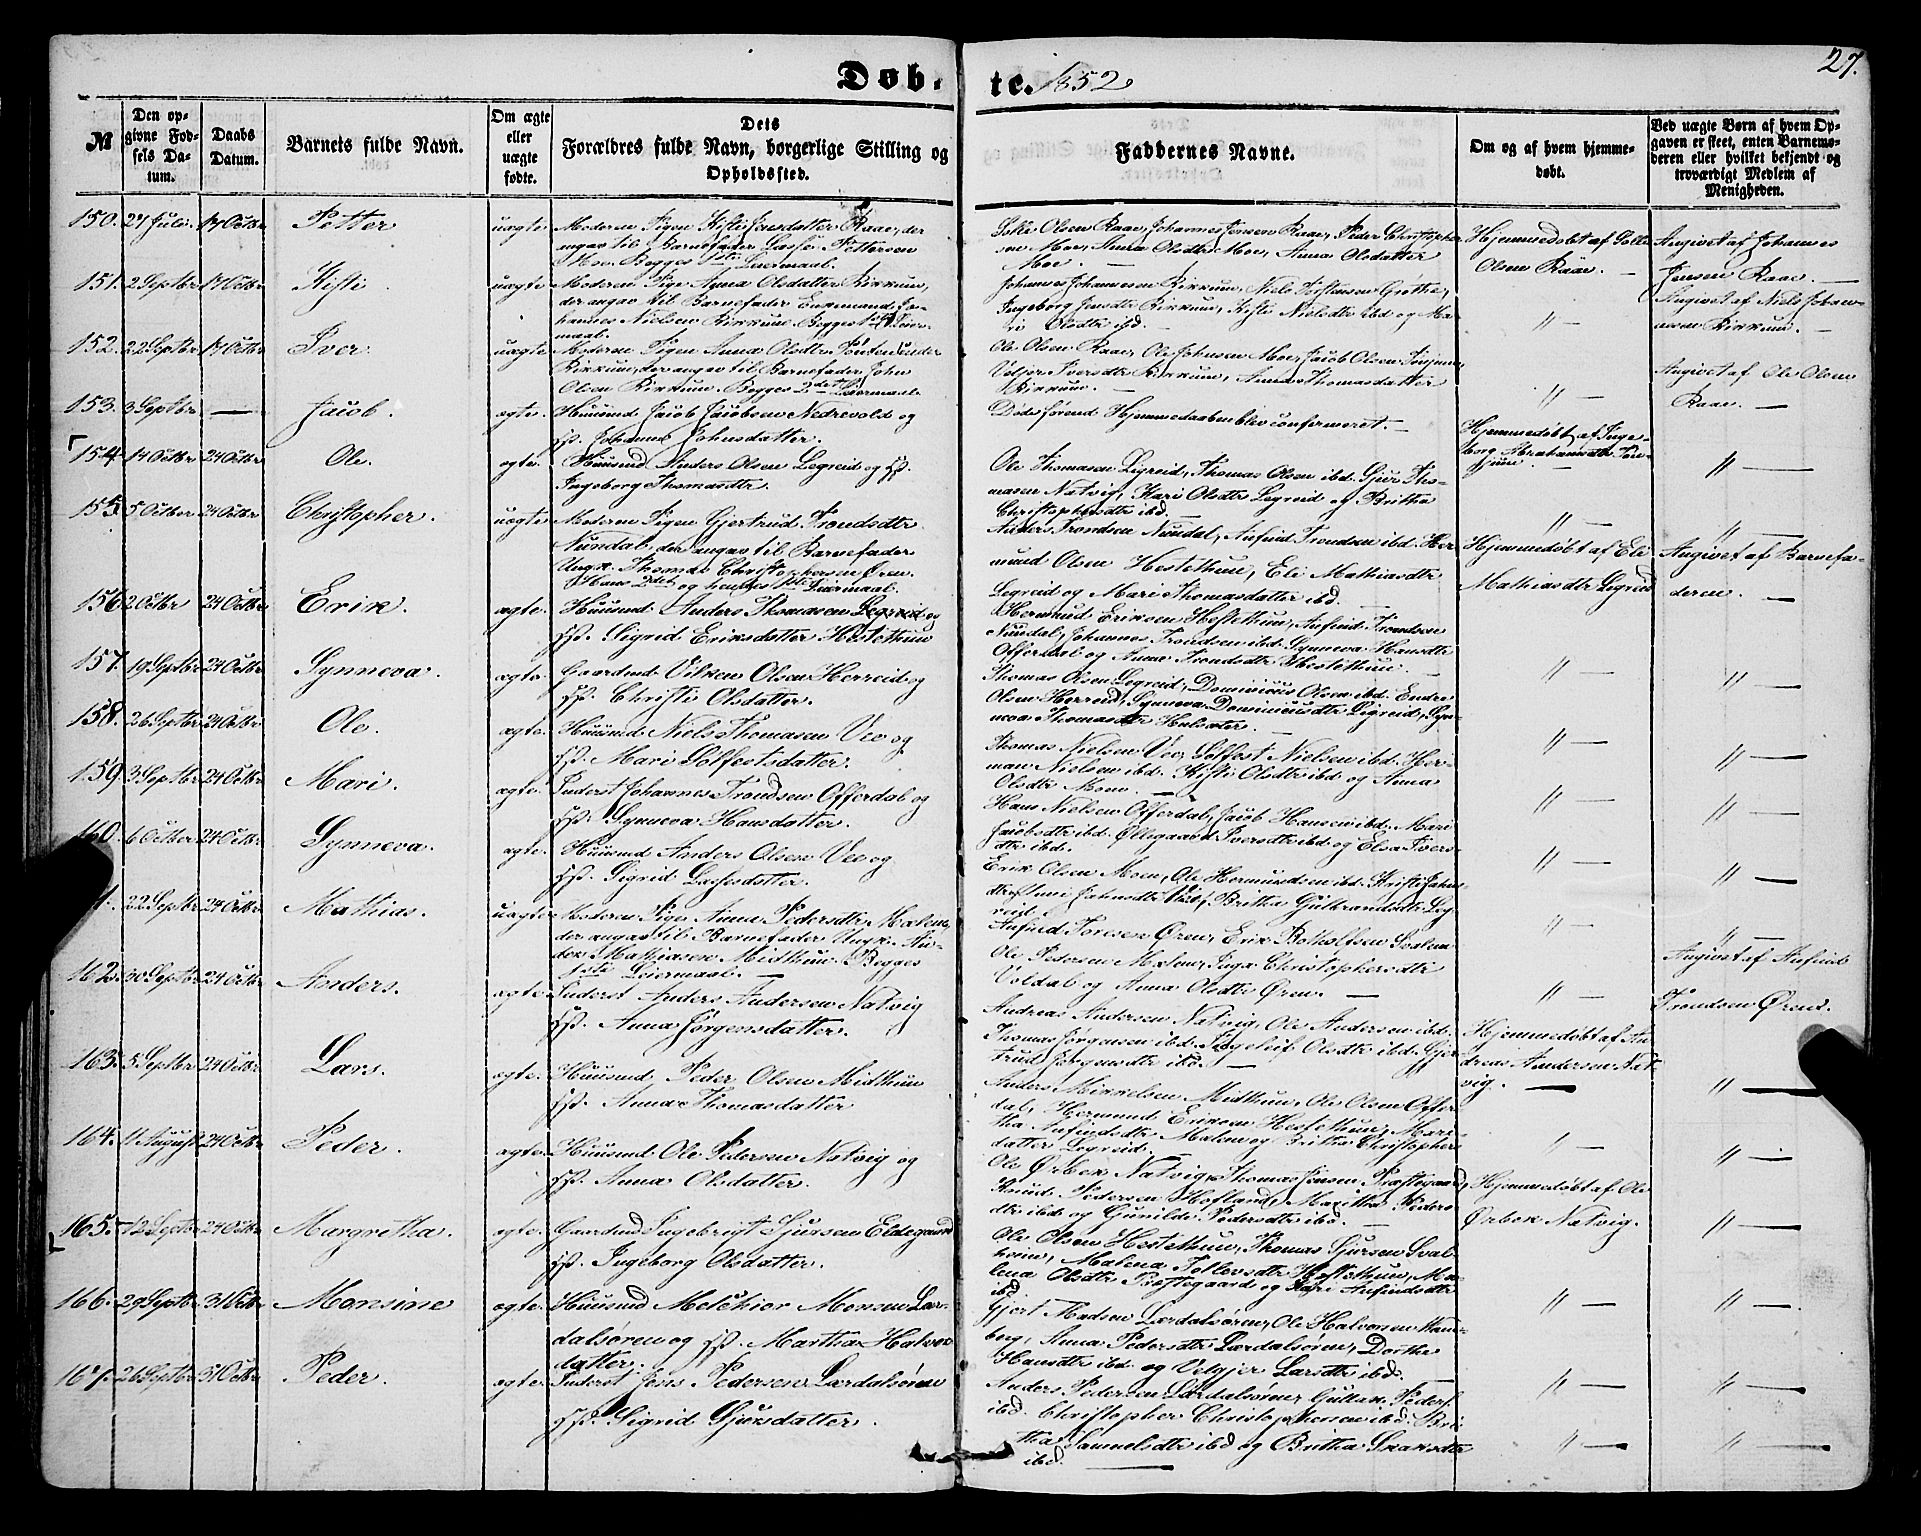 Døb-
te. 1852
27.
№
Den op-
givne Fød-
sels Da-
tum.
Daabs
Datum.
Barnets fulde Navn.
Om ægte
eller
uægte
fødte.
Dets
Forældres fulde Navn, borgerlige Stilling og
Opholdssted.
Faddernes Navne.
Om og af hvem hjemme-
døbt.
Ved uægte Børn af hvem Op-
gaven er skeet, enten Barnemo-
deren eller hvilket bekjendt og
troværdigt Medlem af
Menigheden.
150. 27 Juli. 17 Octbr Petter uægte Moderen Pigen Kisti Jensdatter Raae, der
angav til Barnefader Lasse Pettersen
Moe. Begges 1ste Leiermaal.
Olsen Raae, Johannes Jensen Raae, Peder Christophe-
sen Moe, Anna Olsdtr Moe, Anna Olsdatter
Moe. —
Hjemmedøbt af
Olsen Raae. —
Angivet af Johannes
Jensen Raae. —
151. 2 Septbr 17 Octbr Kisti uægte Moderen Pige Anna Olsdatter Kirkum,
der angav til Barnefader Jo-
hannes Nielsen Kirkum. Begges 1ste Leier-
maal.
Johannes Johannesen Kirkum, Niels Torstensen Grøthe,
Ingeborg Jensdtr Kirkum, Kisti Nielsdtr ibd og Ma-
ri Olsdtr ibd. —
〃 —
Angivet af Niels Johan-
nesen Kirkum. —
152. 22 Septbr 17 Octbr Iver uægte Moderen Pigen Anna Olsdtr
Kirkum, der angav til Barnefader John
Olsen Kirkum. Begges 2det Leiermaal.
Ole Olsen Raae, Ole Johnsen Moe, Jacob Olsen Tønjum,
Iversdtr Kirkum, Anna Thomasdatter
Kirkum. —
〃 —
Angivet af Ole Olsen
Raae. —
153. 3 Septbr — Jacob. ægte. Huusmd Jacob Jacobsen Nedrevold og
Hst. Johanna Johnsdatter.
Døde førend Hjemmedaaben blev confirmeret. —
Hjemmedøbt af Inge-
borg Abrahamsdtr Tøn-
jum. —
〃 —
154. 14 Octbr 24 Octbr Ole. ægte. Huusmd Anders Olsen Legreid og Hst.
Ingeborg Thomasdtr.
Ole Thomasen Legreid, Thomas Olsen ibd. Sjur Tho-
masen Natvig, Kari Olsdtr Legreid og Britha
Christophersdtr ibd. —
〃 —
〃 —
155. 5 Octbr 24 Octbr Christopher. uægte. Moderen Pigen Gjertrud Trondsdtr
Nundal, der angav til Barnefader
Ungk. Thomas Christophersen Øren.
Hans 2det og hendes 1ste Leiermaal.
Anders Trondsen Nundal, Anfind Trondsen ibd. Her-
mund Olsen Hestethun, Eli Mathiasdtr
Legreid og Mari Thomasdatter ibd.
Hjemmedøbt af Eli
Mathiasdtr Legreid
Angivet af Barnefa-
deren. —
156. 2 Octbr 24 Octbr Erik. ægte. Huusmd Anders Thomasen Legreid og
Hst. Sigrid Eriksdatter Hestethun
Hermund Eriksen Hestethun, Anfind Trondsen
Nundal, Johannes Trondsen ibd. Synneva Hansdtr
Offerdal og Anne Trondsdtr Hestethun. —
〃 —
〃 —
157. 19 Septbr 24 Octbr Synneva. ægte. Gaardmd Olsen Herreid og
Hst. Christi Olsdatter.
Thomas Olsen Legreid, Dominicus Olsen ibd. Endre
Olsen Herreid, Synneva Dominicusdtr Legreid, Syn-
neva Thomasdtr —
〃 —
〃 —
158. 26 Septbr 24 Octbr Ole. ægte. Huusmd Niels Thomasen Vee og
Hst. Mari Solfestsdatter.
Thomas Nielsen Vee, Solfest Nielsen ibd. Her-
man Nielsen ibd. Kisti Olsdtr ibd. og Anna
Olsdtr Moen. —
〃 —
〃 —
159. 3 Septbr 24 Octbr Mari. ægte. Inderst Johannes Trondsen Offerdal og
Hst. Synneva Hansdatter.
Hans Nielsen Offerdal, Jacob Hansen ibd. Mari
Jacobsdtr ibd. Øllegaard Iversdtr ibd. og Elsa Ivers-
dtr ibd.
〃 —
〃 —
160. 6 Octber 24 Octbr Synneva. ægte. Huusmd Anders Olsen Vee og
Hst. Sigrid Lassesdatter.
Erik Olsen Moen, Ole Hermundsen ibd. Kristi Johns-
dtr Johnsdtr Vee, Britha Gulbrandsdtr Leg-
reid.
〃 —
〃 —
1. 22 Septbr 24 Octbr Mathias. uægte Moderen Pige Anna Pedersdtr Malene,
der angav til Barnefader Ungk. An-
ders Mathiasen Midthun. Begges
1ste Leiermaal. —
Anfind Toresen Øren, Erik Botholfsen Svalem
Ole Pedersen Malene, Inga Christophersdtr
Voldal og Anna Olsdtr Øren. —
〃 —
Angivet af Anfind
Trondsen Øren.
162. 30 Septbr 24 Octbr Anders. ægte. Inderst Anders Andersen Natvig
Hst. Anna Jørgensdatter.
Andreas Andersen Natvig, Ole Andersen ibd.
Thomas Jørgensen ibd. Ingeleif Olsdtr ibd. Gjer-
trud Jørgensdtr ibd. —
Hjemmedøbt af An-
dreas Andersen Nat-
vig. —
〃 —
163. 5 Septbr 24 Octbr Lars. ægte. Huusmd Peder Olsen Midthun
Hst. Anna Thomasdatter
Anders Mikkelsen Midthun, Ole Olsen Offer-
dal, Hermund Eriksen Hestethun, Mari-
tha Anfindsdtr Malene og Britha Christophers-
datter Legreid. —
〃 —
〃 —
164. 11 August 24 Octbr Peder. ægte. Huusmd Ole Pedersen Natvig og
Hst. Anna Olsdatter.
Ole Ørbek Natvig, Thomas Jensen Præstegaard,
Knud Pedersen Hofland, Maritha Peders-
dtr ibd og Gunilde Pedersdtr ibd. —
Hjemmedøbt af Ole
Ørbek Natvig.
〃 —
165. 12 Septbr 24 Octbr Margretha. ægte. Gaardmd Ingebrigt Sjursen Eldegaard
Hst. Ingeborg Olsdatter.
Ole Olsen Hestethun, Thomas Sjursen Sval-
heim, Malena Tollevsdtr Hestethun, Ma-
lena Olsdtr Præstegaard og Kari Anfindsdtr
ibd.
〃 —
〃 —
166. 29 Septbr 31 Octbr Monsine ægte. Huusmd Melchior Monsen Lær-
dalsøren og Hst. Martha Halvors-
datter.
Gjert Madsen Lærdalsøren, Ole Halvorsen
Anna Pedersdtr Lærdalsøren, Dorthe
Hansdtr ibd. og Larsdtr ibd.
〃 —
〃 —
167. 26 Septbr 31 Octbr Peder. ægte. Inderst Jens Pedersen Lærdalsøren
Hst. Sigrid Sjursdatter.
Anders Pedersen Lærdalsøren,
ibd. Christopher Christophersen ibd. Bri-
tha Samuelsdtr ibd og Britha
ibd. —
〃 —
〃 —